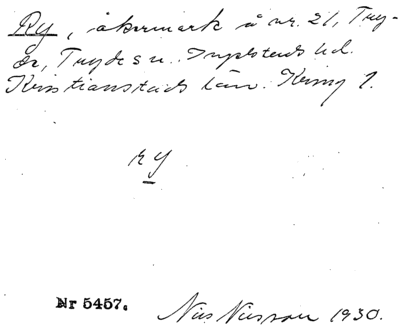 Ry, åkermark å nr. 21, Try-
de, Tryde sn. Ingelstads hd.
Kristianstads län. Kring 1.
ry
Nr 5457.
Nils Nilsson 1930.